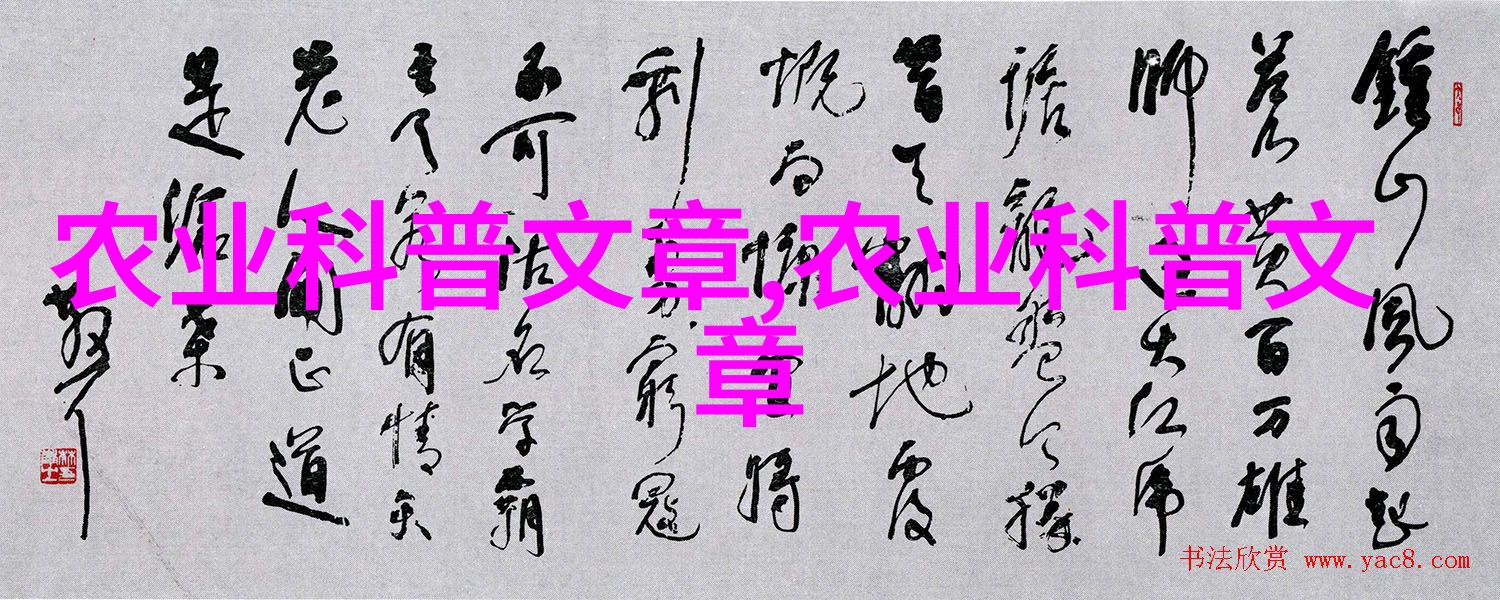 农业科普文章,农业科普文
章
鍾山風雨起
蒼黃百万雄
師过大江虎
踞龍盤今勝
昔天翻地覆
慨而慷宜將
剩勇追窮寇
不可沽名學霸
王天若有情天
老人間正道
是滄桑
书法欣赏 www.yac8.com